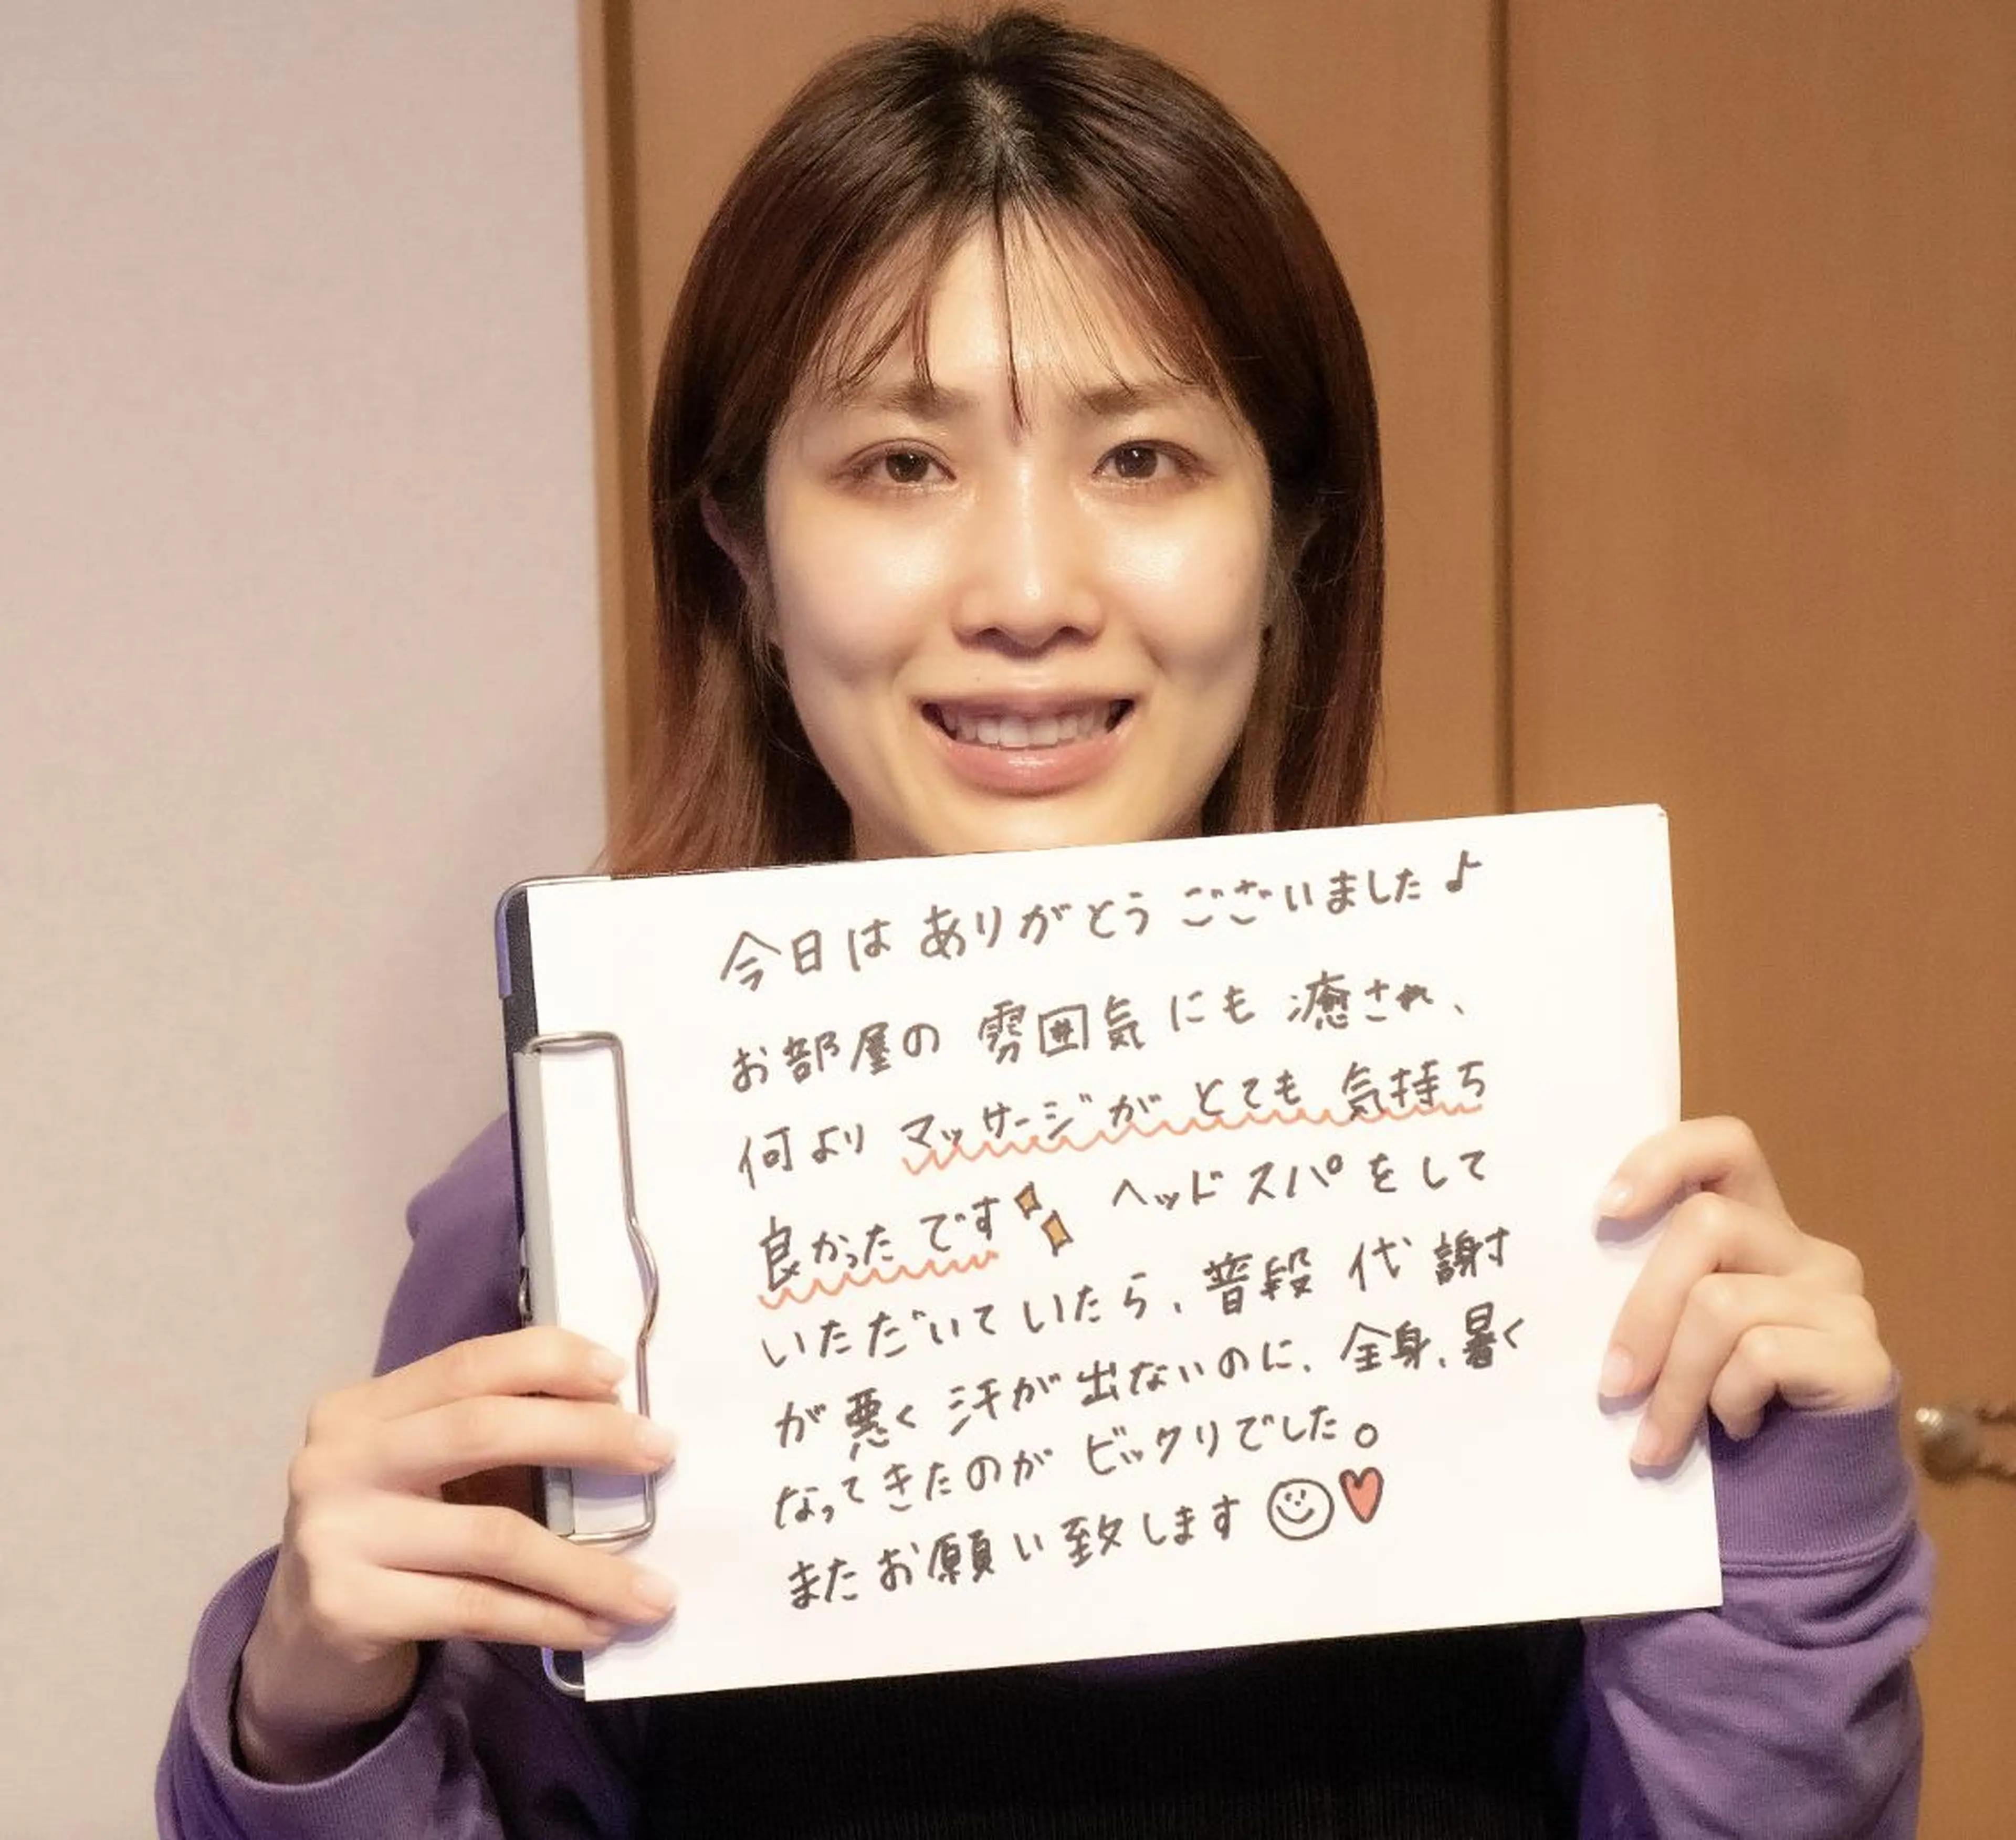 今日は ありがとう ございました♪
お部屋の 雰囲気にも 癒され、
何より マッサージが とても 気持ち
良かったです ヘッドスパをして
いただいていたら、普段 代謝
が悪く 汗が出ないのに、全身、暑く
なってきたのが ビックリでした。
またお願い致します